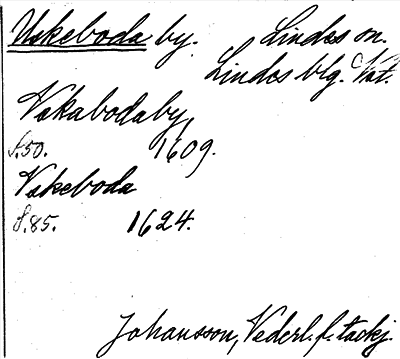 Uskeboda by. Lindes sn.
Lindes blg. Vst.
Vskabodaby,
S.50. 1609.
Vskeboda
S.85. 1624.
Johansson, Vederl. f. tackj.